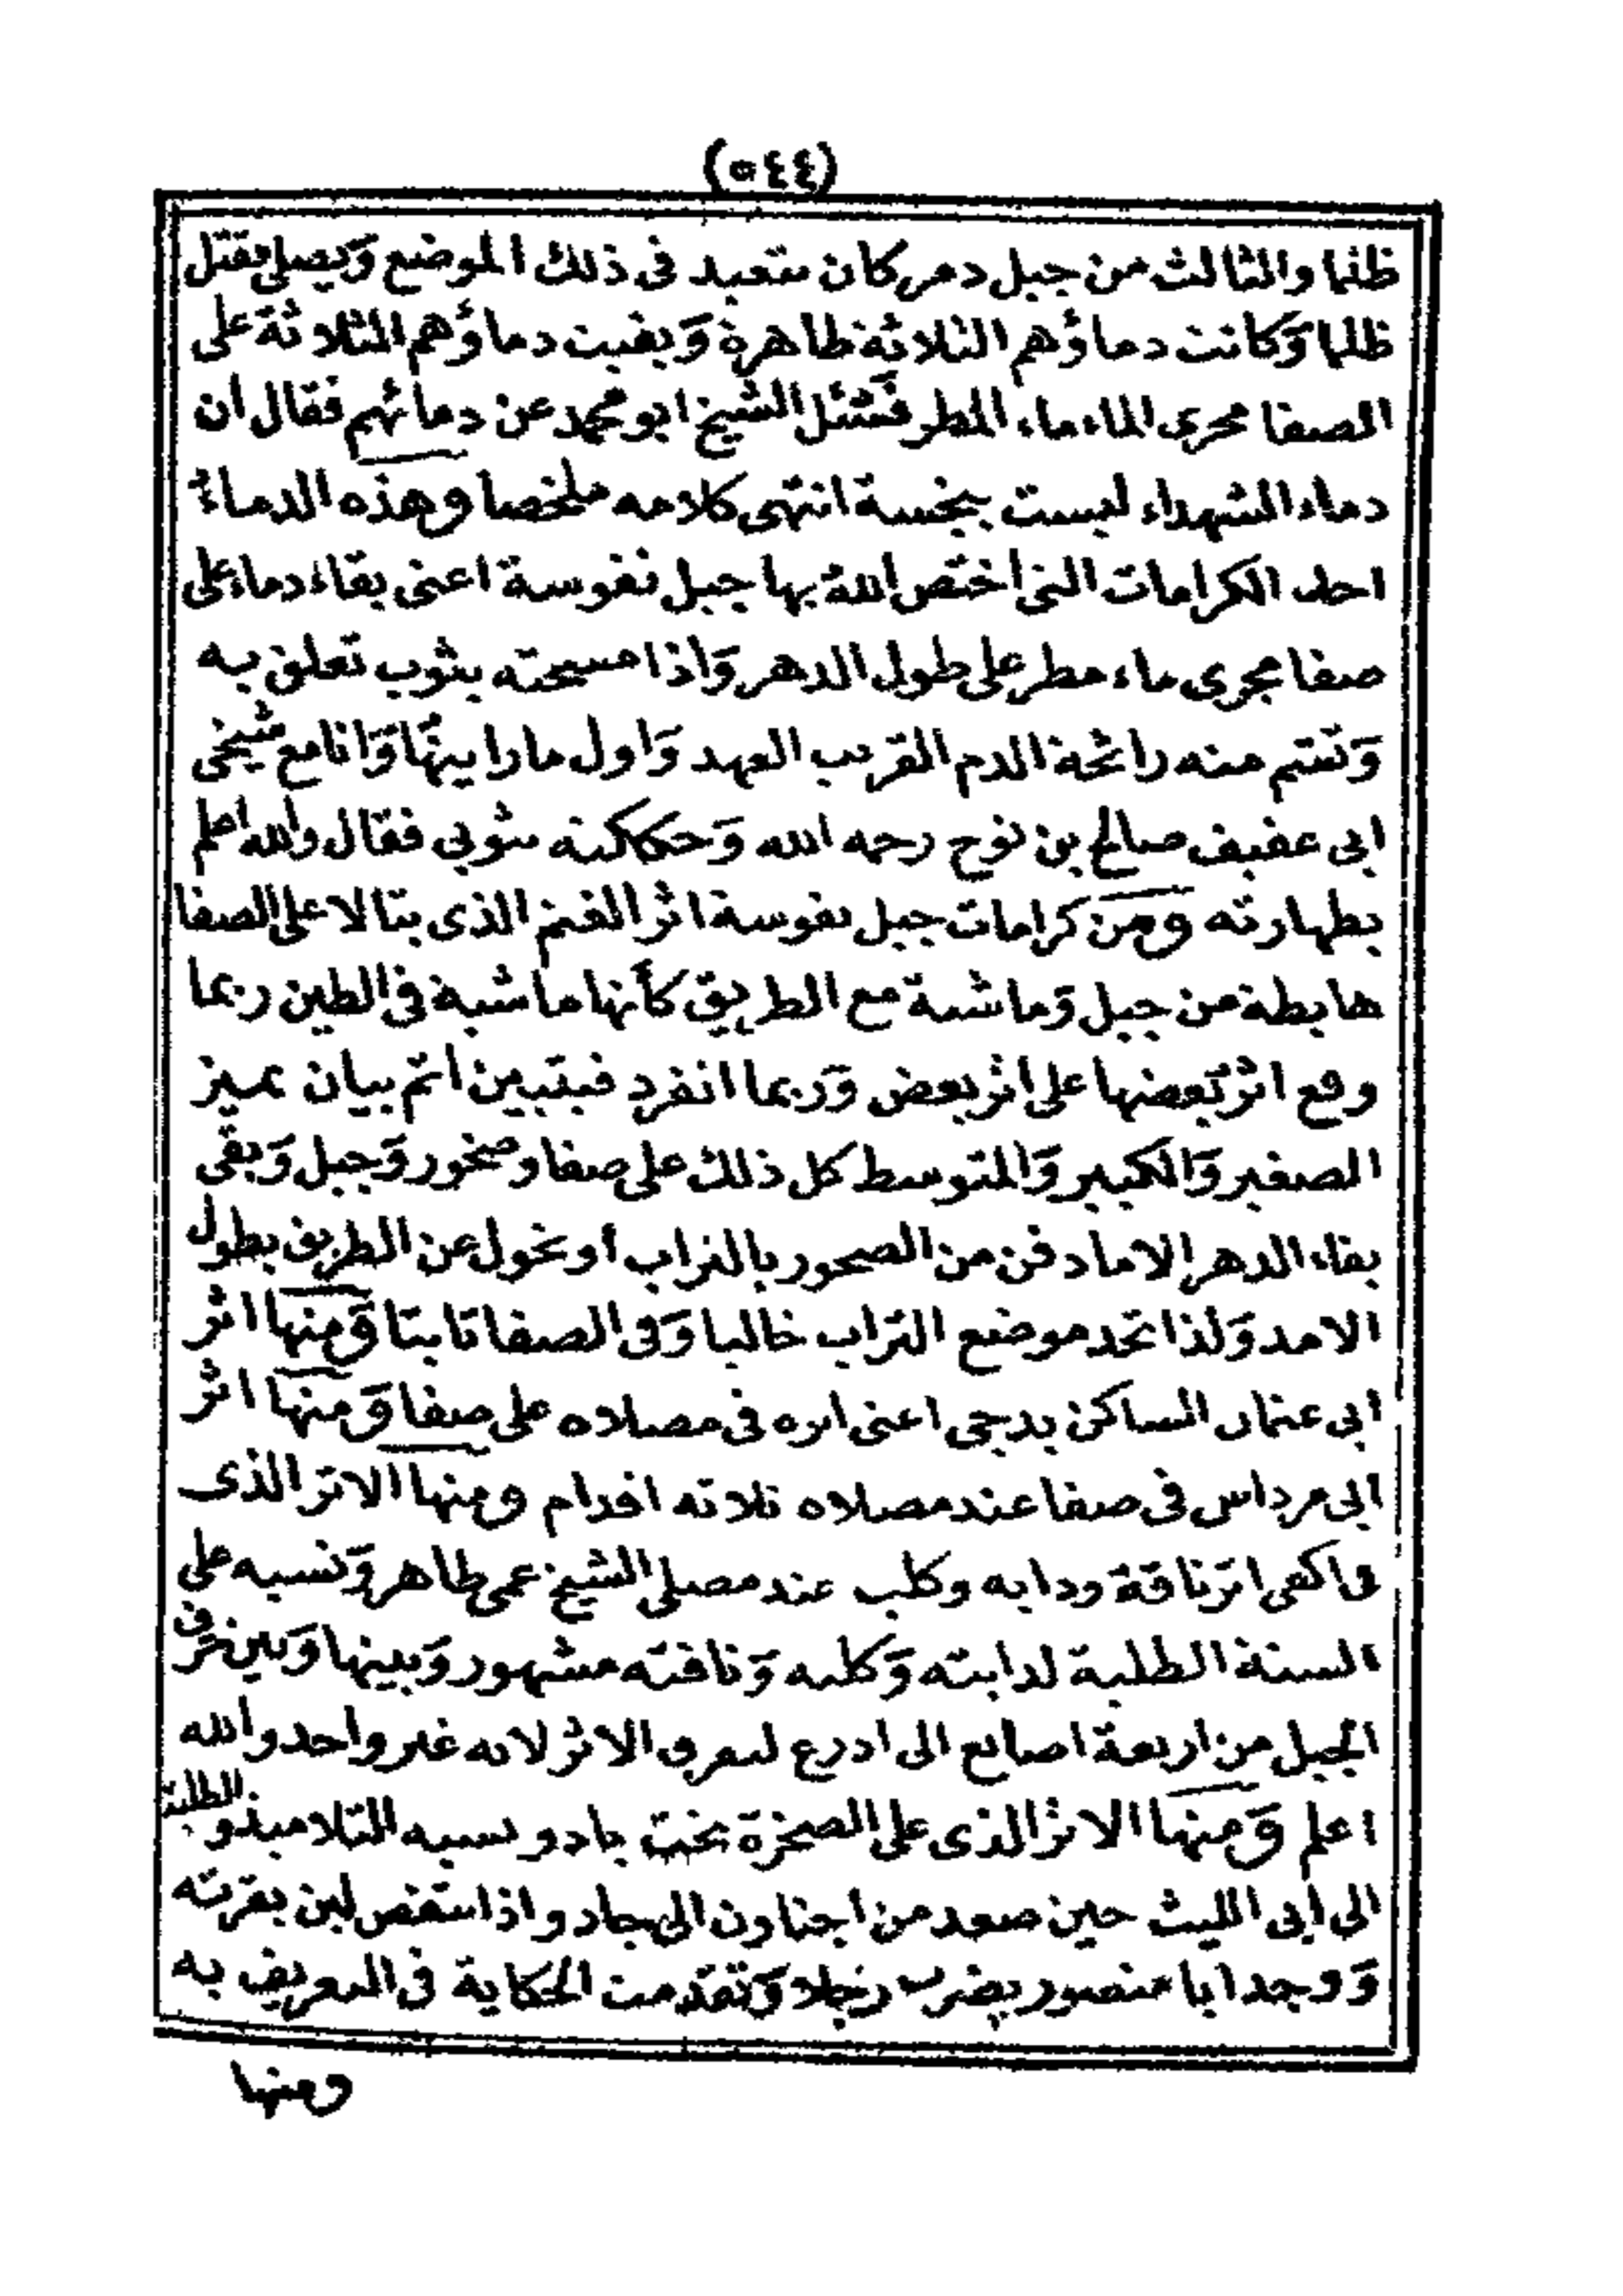 (٥٤٤)
ظلما والثالث من جبل دمر كان يتعبد فى ذلك الموضع وَيصلى فقتل
ظلما وَكانت دماؤهم الثلاثة ظاهرة وَبقيت دماؤهم الثلاثة على
الصفا مجرى الماء ماء المطر فَسُئل الشيخ ابو محمد عن دمائهم فقال ان
دماء الشهداء ليست بنجسة انتهى كلامه ملخصا وهذه الدماءُ
احد الكرامات التى اختص اللهُ بها جبل نفوسة اعنى بقاء دماء على
صفا مجرى ماء مطر على طول الدهر وَاذا مسحته بثوب تعلق به
وَتشتم منه رائحة الدم القريب العهد وَاول ما رايتهَا وَانا مع شيخى
ابى عفيف صالح بن نوح رحمه الله وَحككته بثوبى فقال والله اعلم
بطهارته ومن كرامات جبل نفوسة اثر الغنم الذى بتالا على الصفا
هابطة من جبل وَماشية مع الطريق كأنها ماشية فى الطين ربما
وقع اثر بَعضها على اثر بعض وَربما انفرد فيتبين اتم بيان يميز
الصغير وَالكبير وَالمتوسط كل ذلك على صفا وصخور وَجبل وَبقى
بقاء الدهر الا ما دفن من الصخور بالتراب أو تحول عن الطريق بطول
الامد وَلذا تجد موضع التراب خاليا وَفى الصفا ثابتا وَمنها اثر
ابى عثمان الساكن بدجى اعنى اثره فى مصلاه على صفا وَمنها اثر
ابى مرداس فى صفا عند مصلاه ثلاثه اقدام ومنها الاثر الذى
فى اكفى اثر ناقة ودابه وكلب عند مصلى الشيخ عمى طاهر وَنسبه على
السنة الطلبة لدابته وَكلبه وَناقته مشهور وَبينها وَبين غرفى
الجبل من اربعة اصابع الى ادرع ليعرف الاثر لانه غير واحد والله
اعلم وَمنها الاثر الذى على الصخرة تحت جادو نسبه التلاميذ و الطلبة
الى أبى الليث حين صعد من أجناون الى جادو اذا ستغص لبن بقرته
وَوجد ابا منصور يضرب رجلا وَتقدمت الحكاية فى التعريف به
ومنها